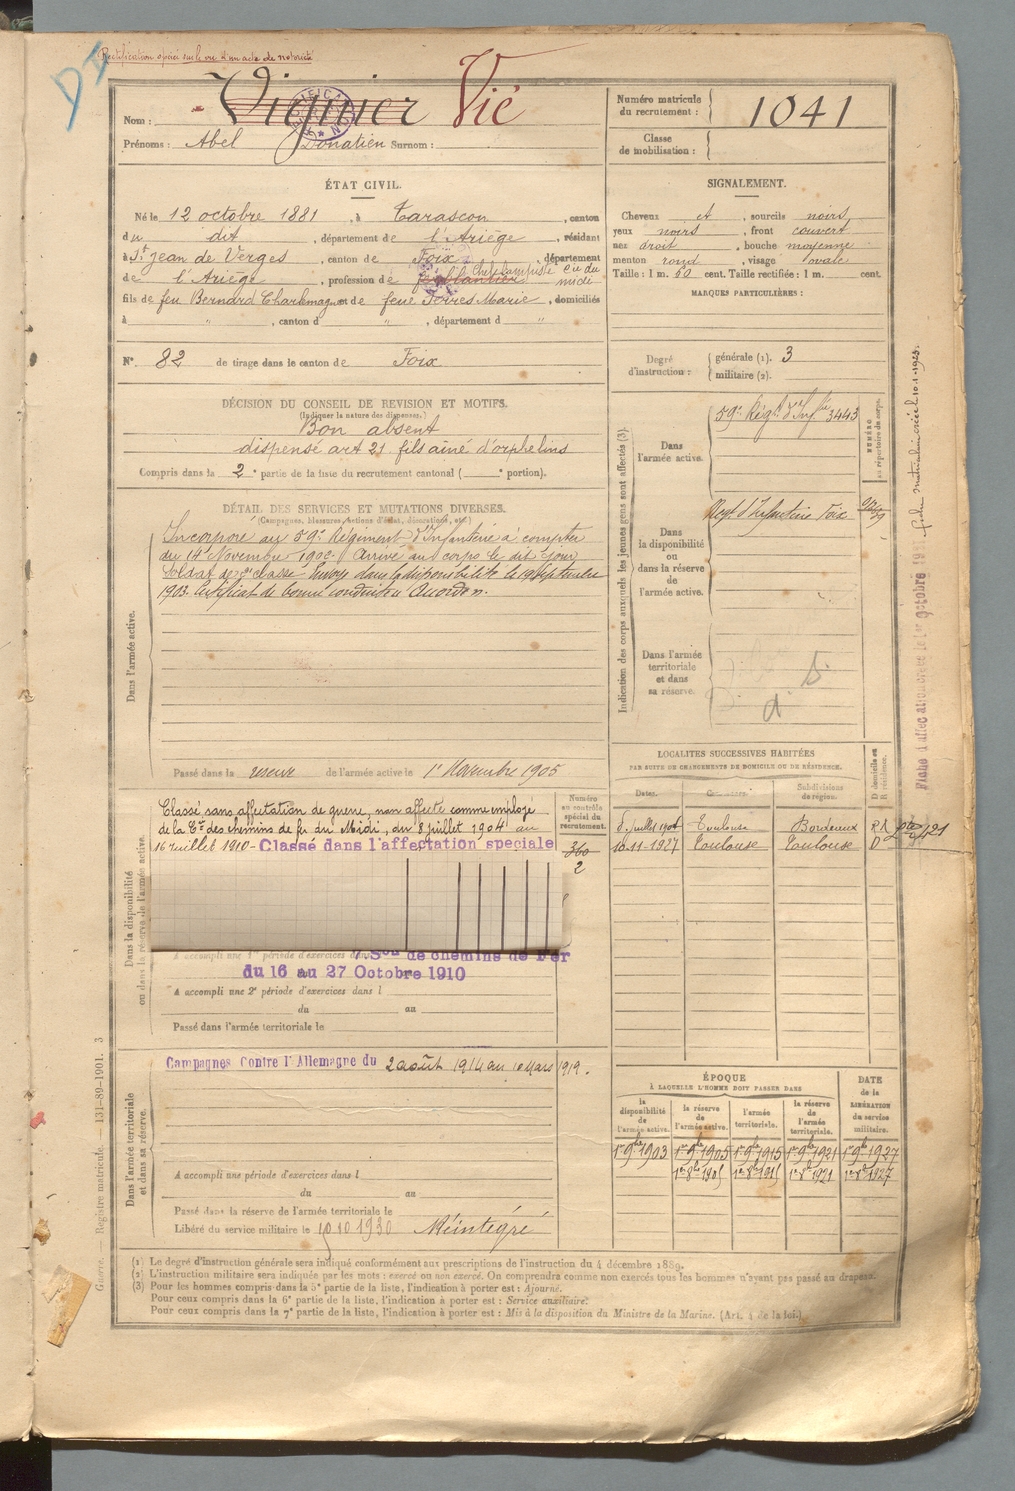 Rectification opérée sur le vu d'un acte de notoriété
D
Nom : Vignier Vié
Prénoms : Abel Donatien Surnom :
Numéro matricule du recrutement : 1041
Classe de mobilisation :
ÉTAT CIVIL.
Né le 12 octobre 1881, à Tarascon, canton
du dit, département de l'Ariège, résidant
à St Jean de Verges, canton de Foix, département
de l'Ariège, profession de ferblantier Cie du midi
fils de feu Bernard Charlemagne et de feue Torres Marie, domiciliés
à " , canton d " , département d "
SIGNALEMENT.
Cheveux et , sourcils noirs,
yeux noirs , front couvert
nez droit , bouche moyenne
menton rond , visage ovale
Taille : 1 m. 60 cent. Taille rectifiée : 1 m. cent.
MARQUES PARTICULIÈRES :
N° 82 de tirage dans le canton de Foix
Degré d'instruction :
générale (1). 3
militaire (2).
DÉCISION DU CONSEIL DE REVISION ET MOTIFS.
(Indiquer la nature des dispenses.)
Bon absent
dispensé art 21 fils aîné d'orphelins
Compris dans la 2e partie de la liste du recrutement cantonal ( e portion).
DÉTAIL DES SERVICES ET MUTATIONS DIVERSES.
(Campagnes, blessures, actions d'éclat, décorations, etc.)
Dans l'armée active.
Incorporé au 59e Régiment d'Infanterie à compter
du 14 Novembre 1902. Arrivé au corps le dit jour
Soldat de 2e classe Envoyé dans la disponibilité le 19 Septembre
1903. Certificat de bonne conduite Accordé.
Passé dans la réserve de l'armée active le 1er Novembre 1905
Indication des corps auxquels les jeunes gens sont affectés (3).
NUMÉRO au répertoire du corps.
Dans l'armée active.
59e Régt d'Infie 3443
Dans la disponibilité ou dans la réserve de l'armée active.
Régt d'Infanterie Foix
Dans l'armée territoriale et dans sa réserve.
Fiche d'affec
fiche matricule créée le 10.1.1923.
Dans la disponibilité ou dans la réserve de l'armée active.
Classé sans affectation de guerre, non affecté comme employé
de la Cie des chemins de fer du Midi, du 8 juillet 1904 au
16 juillet 1910 - Classé dans l'affectation speciale
Numéro au contrôle spécial du recrutement.
360
2
A accompli une 1re période d'exercices dans
de chemins de Fer
du 16 au 27 Octobre 1910
A accompli une 2e période d'exercices dans l
du au
Passé dans l'armée territoriale le
LOCALITÉS SUCCESSIVES HABITÉES
PAR SUITE DE CHANGEMENTS DE DOMICILE OU DE RÉSIDENCE.
Dates. Communes. Subdivisions de région. D domicile ou R résidence.
8 juillet 1904 Toulouse Bordeaux R
10-11-1927 Toulouse Toulouse D
Dans l'armée territoriale et dans sa réserve.
Campagnes Contre l'Allemagne du 2 août 1914 au 10 Mars 1919.
A accompli une période d'exercices dans l
du au
Passé dans la réserve de l'armée territoriale le
Libéré du service militaire le 10 10 1930 Réintégré
ÉPOQUE
À LAQUELLE L'HOMME DOIT PASSER DANS
DATE de la LIBÉRATION du service militaire.
la disponibilité de l'armée active.
la réserve de l'armée active.
l'armée territoriale.
la réserve de l'armée territoriale.
1er 9bre 1903 1er 9bre 1905 1er 9bre 1915 1er 9bre 1921 1er 9bre 1927
1er 8bre 1905 1er 8bre 1915 1er 8bre 1921 1er 8bre 1927
Guerre. — Registre matricule. — 131-89-1901. 3
(1) Le degré d'instruction générale sera indiqué conformément aux prescriptions de l'instruction du 4 décembre 1889.
(2) L'instruction militaire sera indiquée par les mots : exercé ou non exercé. On comprendra comme non exercés tous les hommes n'ayant pas passé au drapeau.
(3) Pour les hommes compris dans la 5e partie de la liste, l'indication à porter est : Ajourné.
Pour ceux compris dans la 6e partie de la liste, l'indication à porter est : Service auxiliaire.
Pour ceux compris dans la 7e partie de la liste, l'indication à porter est : Mis à la disposition du Ministre de la Marine. (Art. 4 de la loi).